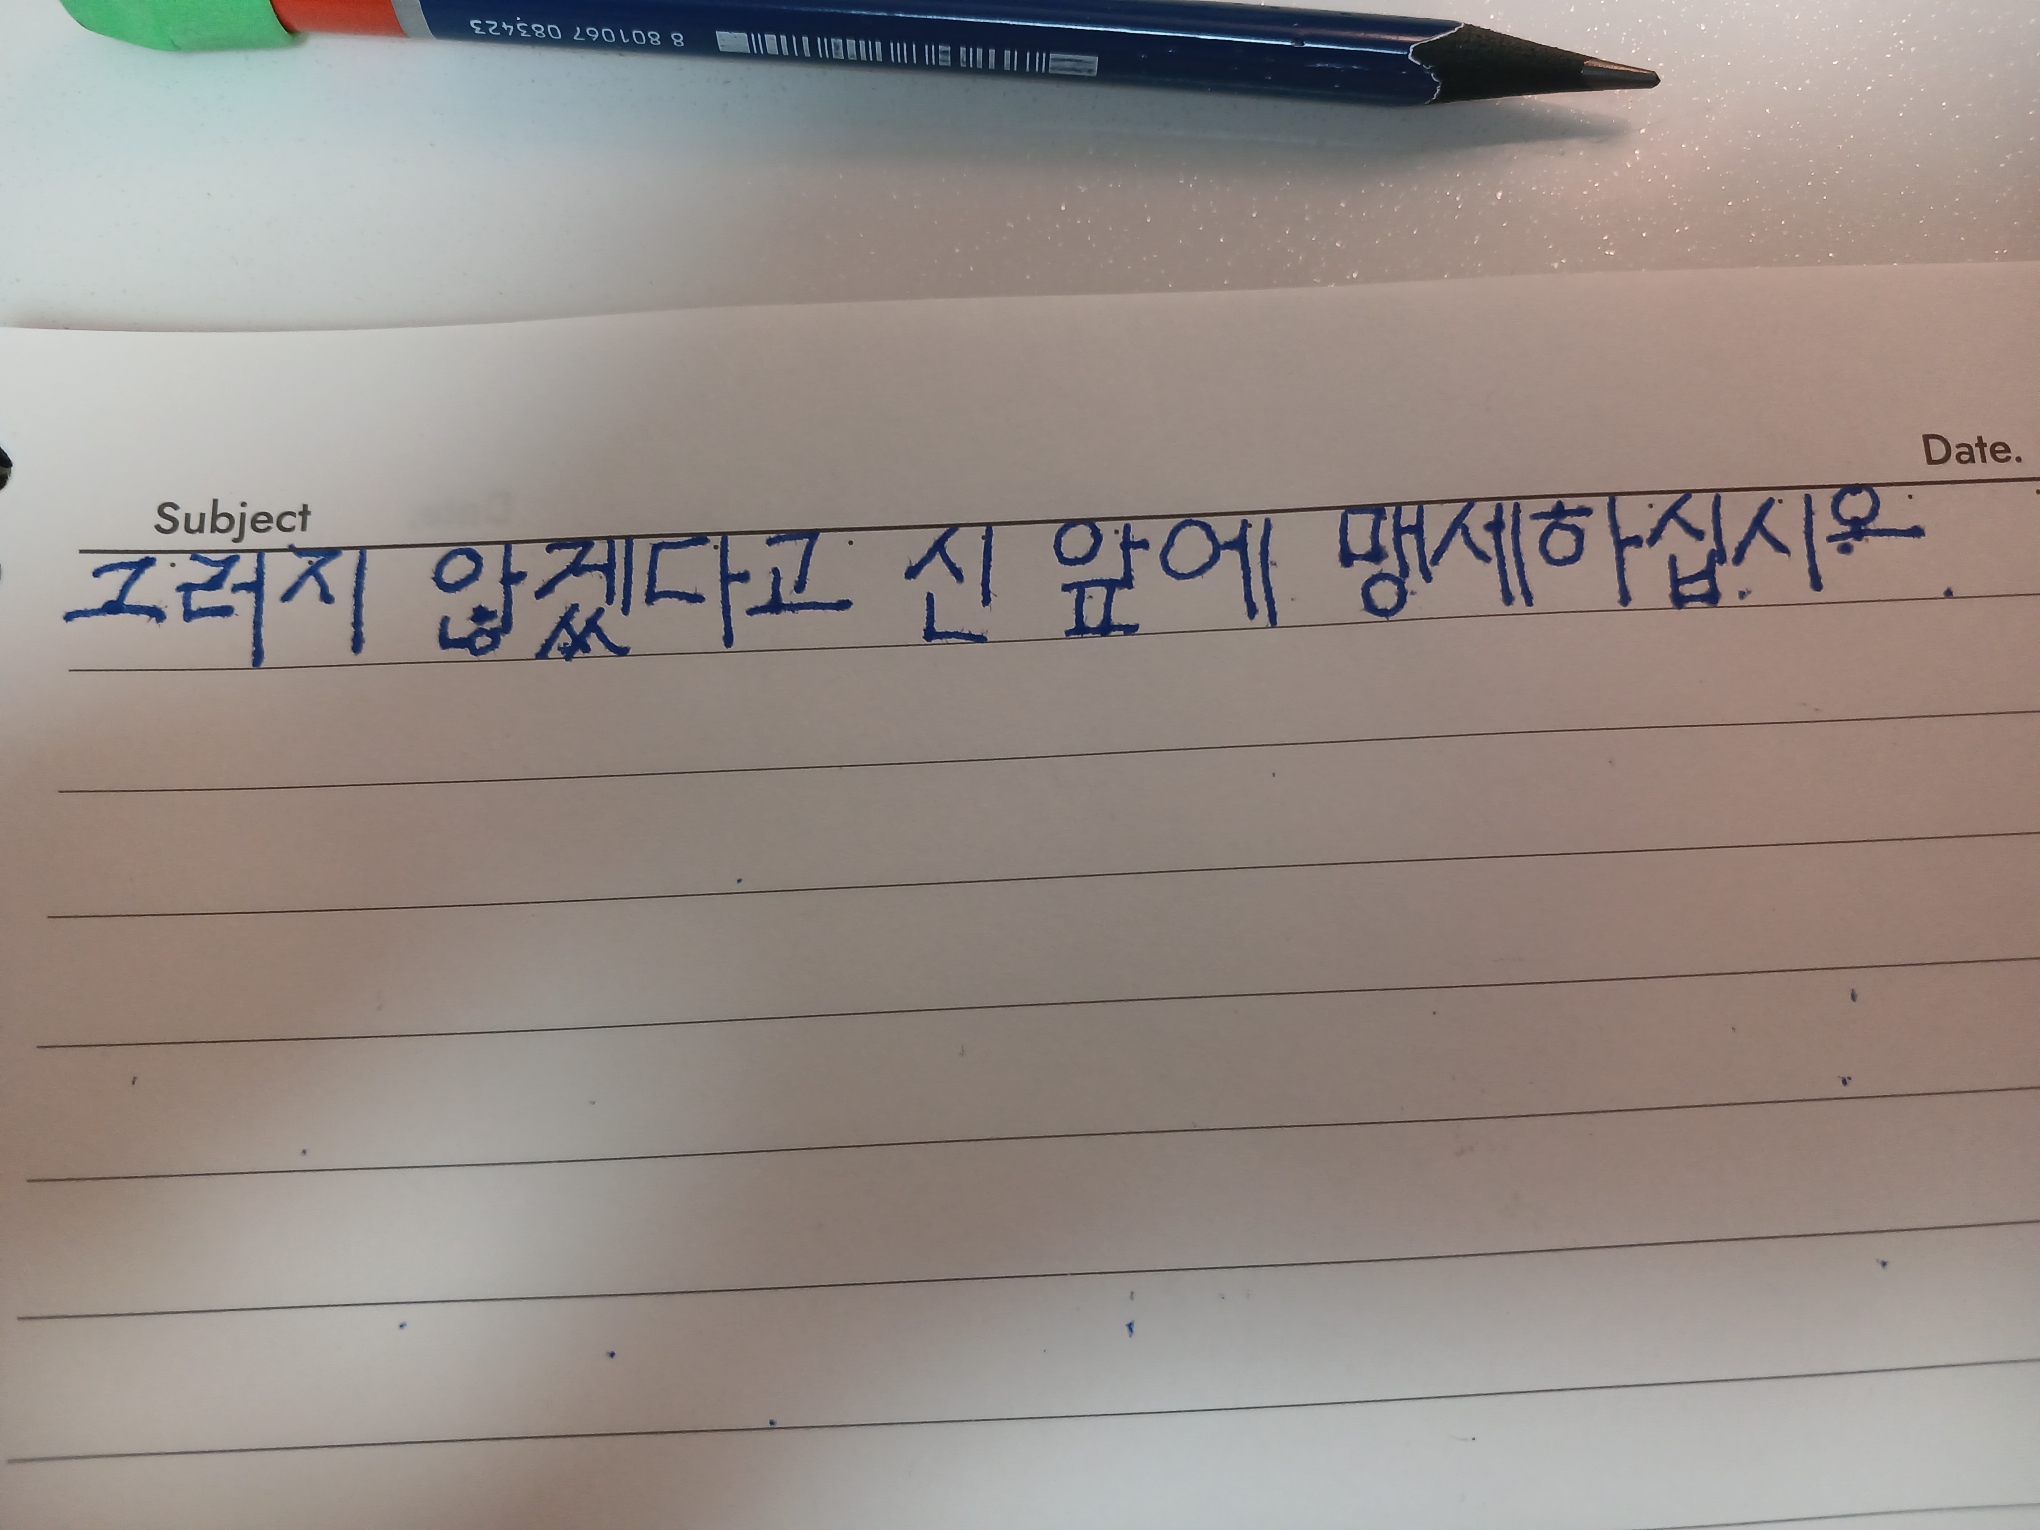 8 801067 083423
Subject
Date.
그러지 않겠다고 신 앞에 맹세하십시오.